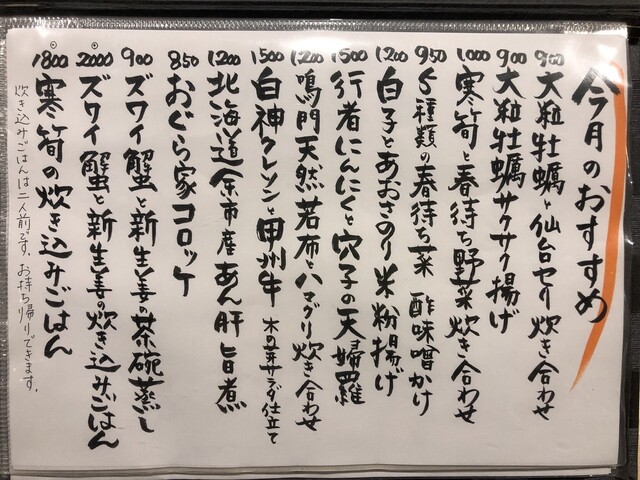 今月のおすすめ
900 大粒牡蠣と仙台セリ炊き合わせ
900 大粒牡蠣サクサク揚げ
1000 寒筍と春待ち野菜炊き合わせ
950 5種類の春待ち菜 酢味噌かけ
1200 白子とあおさのり米粉揚げ
1500 行者にんにくと穴子の天婦羅
1200 鳴門天然若布とハマグリ炊き合わせ
1500 白神クレソンと甲州牛 木の芽サラダ仕立て
1200 北海道余市産あん肝旨煮
850 おぐら家コロッケ
900 ズワイ蟹と新生姜の茶碗蒸し
2000 ズワイ蟹と新生姜の炊き込みごはん
1800 寒筍の炊き込みごはん
炊き込みごはんは二人前です。お持ち帰りできます。